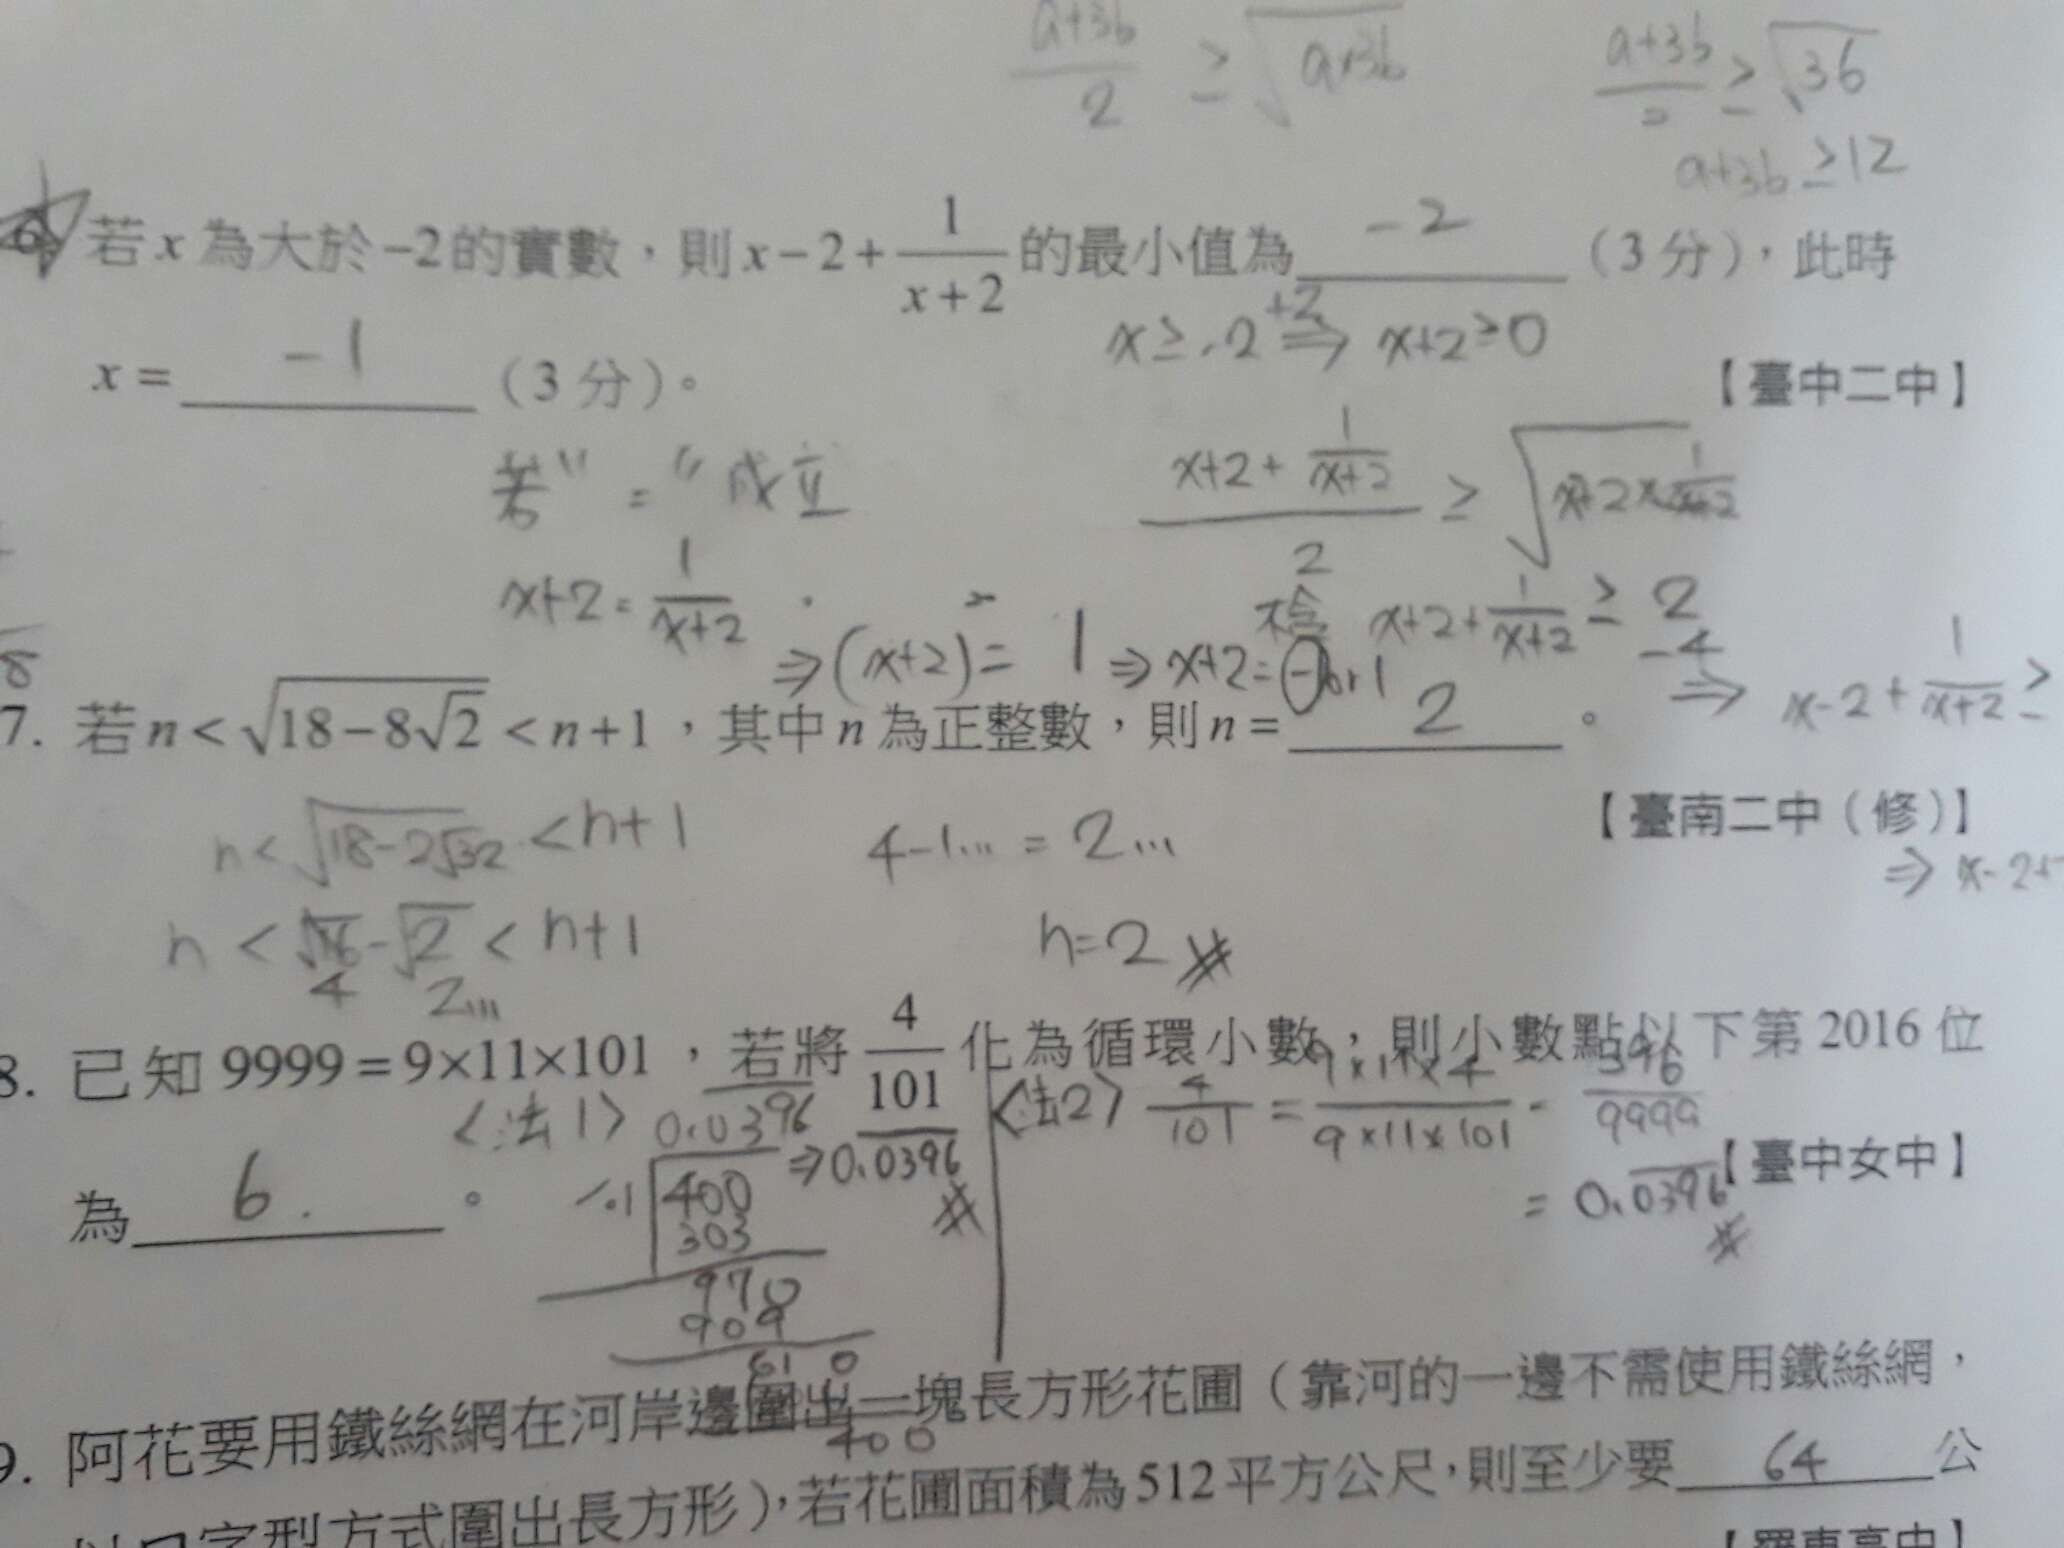 a+3b/2 ≥ √(a×3b)
a+3b/2 ≥ √36
a+3b ≥ 12
6. 若x為大於-2的實數，則x-2+1/(x+2)的最小值為 -2 (3分)，此時
x≥-2 +2⇒ x+2≥0
x= -1 (3分)。
【臺中二中】
若"="成立
(x+2+1/(x+2))/2 ≥ √(x+2×1/(x+2))
x+2=1/(x+2)
⇒(x+2)²=1⇒x+2=-1 or 1
不合
x+2+1/(x+2)≥2
-4
⇒ x-2+1/(x+2)≥
7. 若n<√(18-8√2)<n+1，其中n為正整數，則n= 2 。
【臺南二中（修）】
n<√(18-2√32)<n+1
4-1... = 2...
⇒ x-2+
n<√16-√2<n+1
4 2...
n=2 #
8. 已知9999=9×11×101，若將4/101化為循環小數，則小數點以下第2016位
為 6. 。
【臺中女中】
<法1> 0.0396
101 400
303
970
909
610
400
⇒0.0396 #
<法2> 4/101 = 9×11×4/9×11×101 = 396/9999
= 0.0396 #
9. 阿花要用鐵絲網在河岸邊圍出一塊長方形花圃（靠河的一邊不需使用鐵絲網，
以ㄇ字型方式圍出長方形），若花圃面積為512平方公尺，則至少要 64 公
【羅東高中】